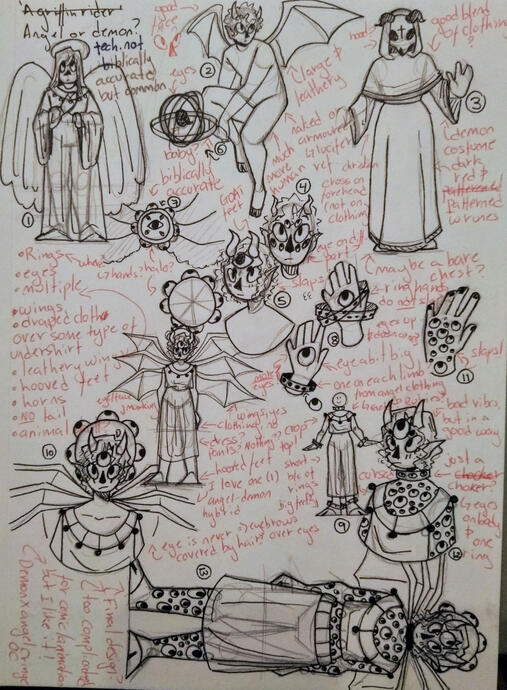 A griffin rider
Angel or demon?
tech. not
biblically
accurate
but common
good
face
eyes
②
⑥
baby?
biblically
accurate
large &
leathery
naked or
armoured
much
more
human
Lucifer
ref
hood
good blend
of clothing?
③
demon
costume
dark
red &
patterned
patterned
w runes
christian
cross on
forehead
(not on
clothing)
④
GOAT
feet
①
⑦
hands? halo?
• Rings
• eyes
• multiple
wings
• draped cloth
over some type of
undershirt
• leathery wings
• hooved feet
• horns
• NO tail
• animal
eye on
part
slaps
⑤
maybe a bare
chest?
ring hands
do not slap
⑧
eyes up
eye a bit big
one on each limb
from angel clothing
⑪
slaps!
more
eyes
wings, eyes
clothing no
dress?
pants? Nothing? crop
top!
hooved feet
short
I love one (1)
angel-demon
hybrid
b/c of
rings
bad vibes
but in a
good way
just a
choker
choker?
cursed
eyes
on body
& one
ring
⑨
⑩
⑫
eye is never
covered by hair
eyebrows
over eyes
⑬
Final design?
too complicated
for comic/animation
but I like it!
Demon x angel cringe
OC